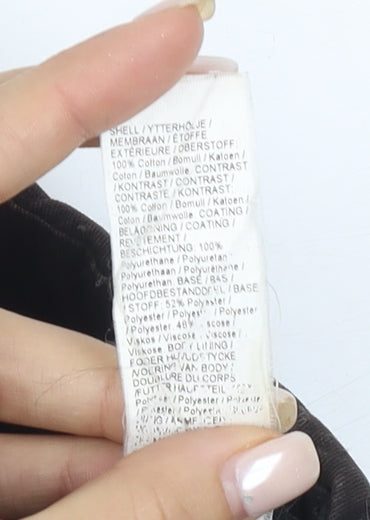 SHELL / YTTERHÖLJE /
MEMBRAAN / ÉTOFFE
EXTÉRIEURE / OBERSTOFF:
100% Cotton / Bomull / Katoen /
Coton / Baumwolle. CONTRAST
/ KONTRAST / CONTRAST /
CONTRASTE / KONTRAST:
100% Cotton / Bomull / Katoen /
Coton / Baumwolle. COATING /
BELÄGGNING / COATING /
REVÊTEMENT /
BESCHICHTUNG: 100%
Polyurethane / Polyuretan
Polyurethaan / Polyuréthane /
Polyurethan. BASE / BAS /
HOOFDBESTANDDEEL / BASE
/ STOFF: 52% Polyester /
Polyester / Polyester / Polyester
/ Polyester, 48% Viscose /
Viskos / Viscose / Viscose /
Viskose. BODY LINING /
FODER HUVUDSTYCKE
NOURING VAN BODY /
DOUBLURE DU CORPS
/ FUTTER HAUPTTEIL
Polyester / Polyester / Polyester
/ Polyester